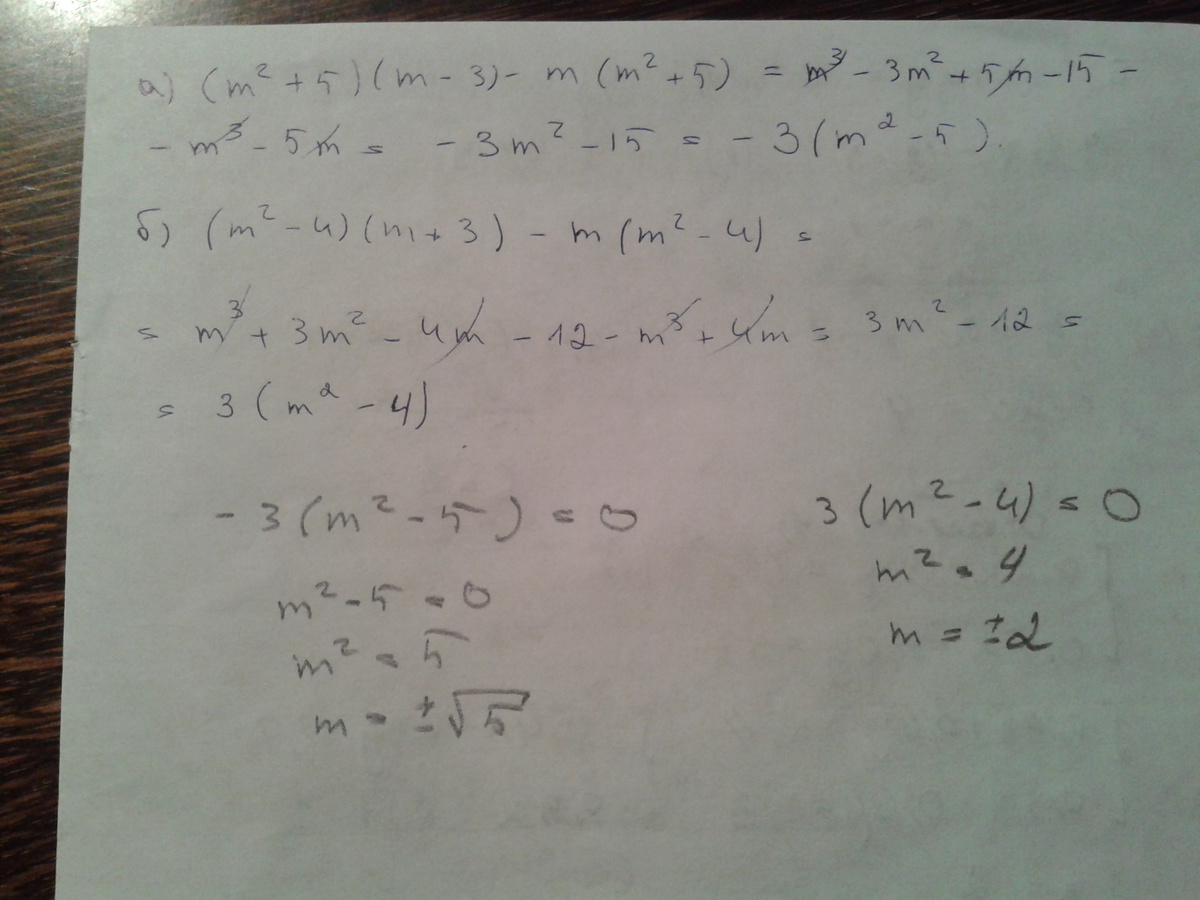 а) (m² + 5)(m - 3) - m (m² + 5) = m³ - 3m² + 5m - 15 -
- m³ - 5m = - 3m² - 15 = - 3(m² - 5).
б) (m² - 4)(m + 3) - m (m² - 4) =
= m³ + 3m² - 4m - 12 - m³ + 4m = 3m² - 12 =
= 3 (m² - 4)
- 3 (m² - 5) = 0
m² - 5 = 0
m² = 5
m = ±√5
3 (m² - 4) = 0
m² = 4
m = ±2